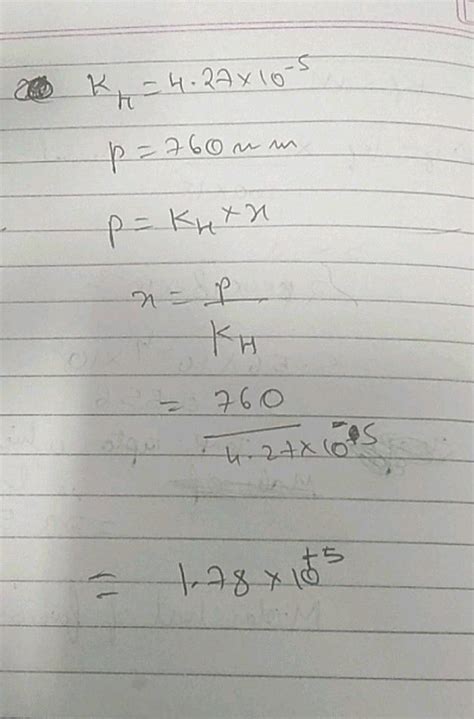 K_H = 4.27 × 10^-5
p = 760 mm
p = K_H × x
x = p / K_H
= 760 / 4.27 × 10^-5
= 1.78 × 10^+5